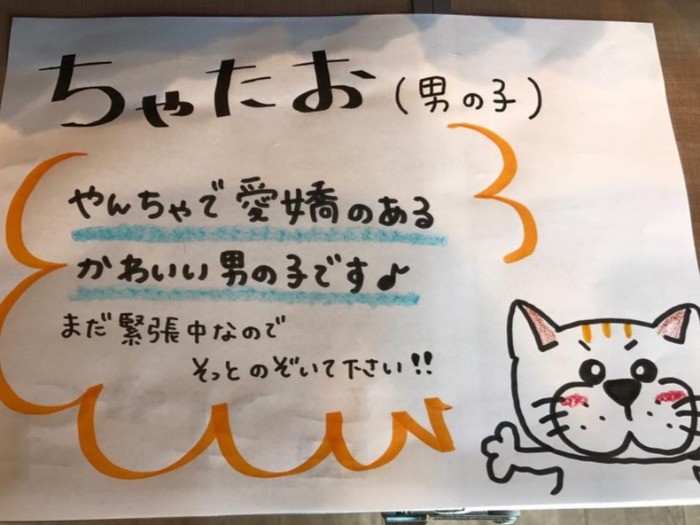 ちゃたお（男の子）
やんちゃで愛嬌のある
かわいい男の子です♪
まだ緊張中なので
そっとのぞいて下さい!!